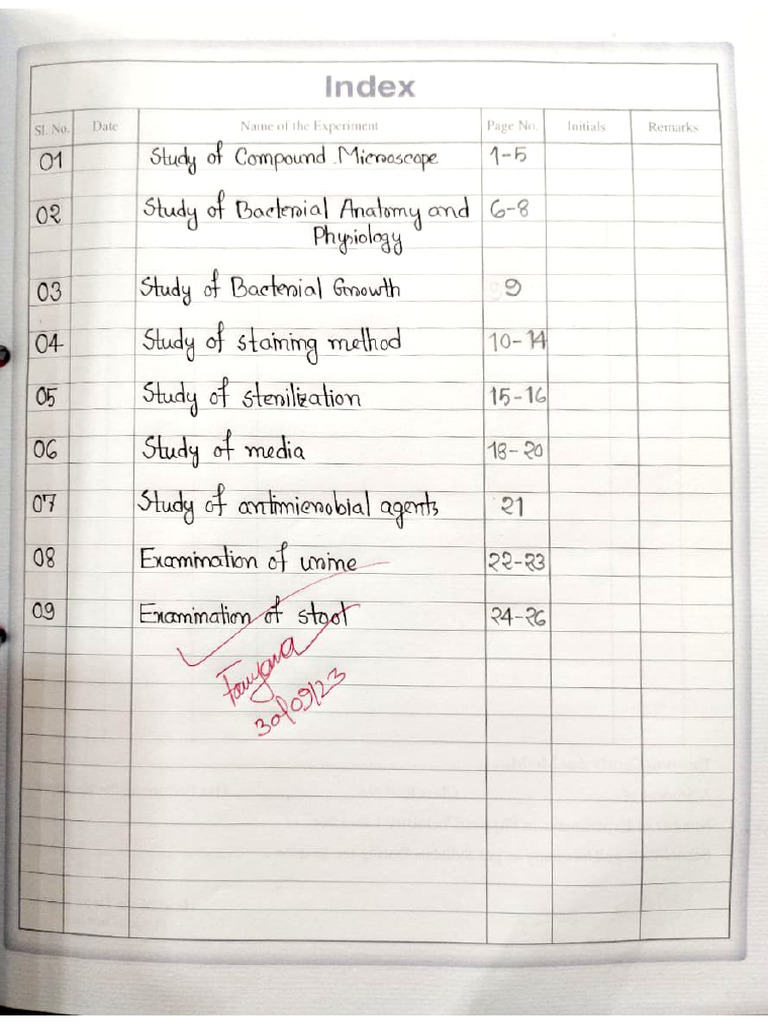 Index
Sl. No. Date Name of the Experiment Page No. Initials Remarks
01 Study of Compound Microscope 1-5
02 Study of Bacterial Anatomy and 6-8
Physiology
03 Study of Bacterial Growth 9
04 Study of staining method 10-14
05 Study of sterilization 15-16
06 Study of media 18-20
07 Study of antimicrobial agents 21
08 Examination of urine 22-23
09 Examination of stool 24-26
30/09/23